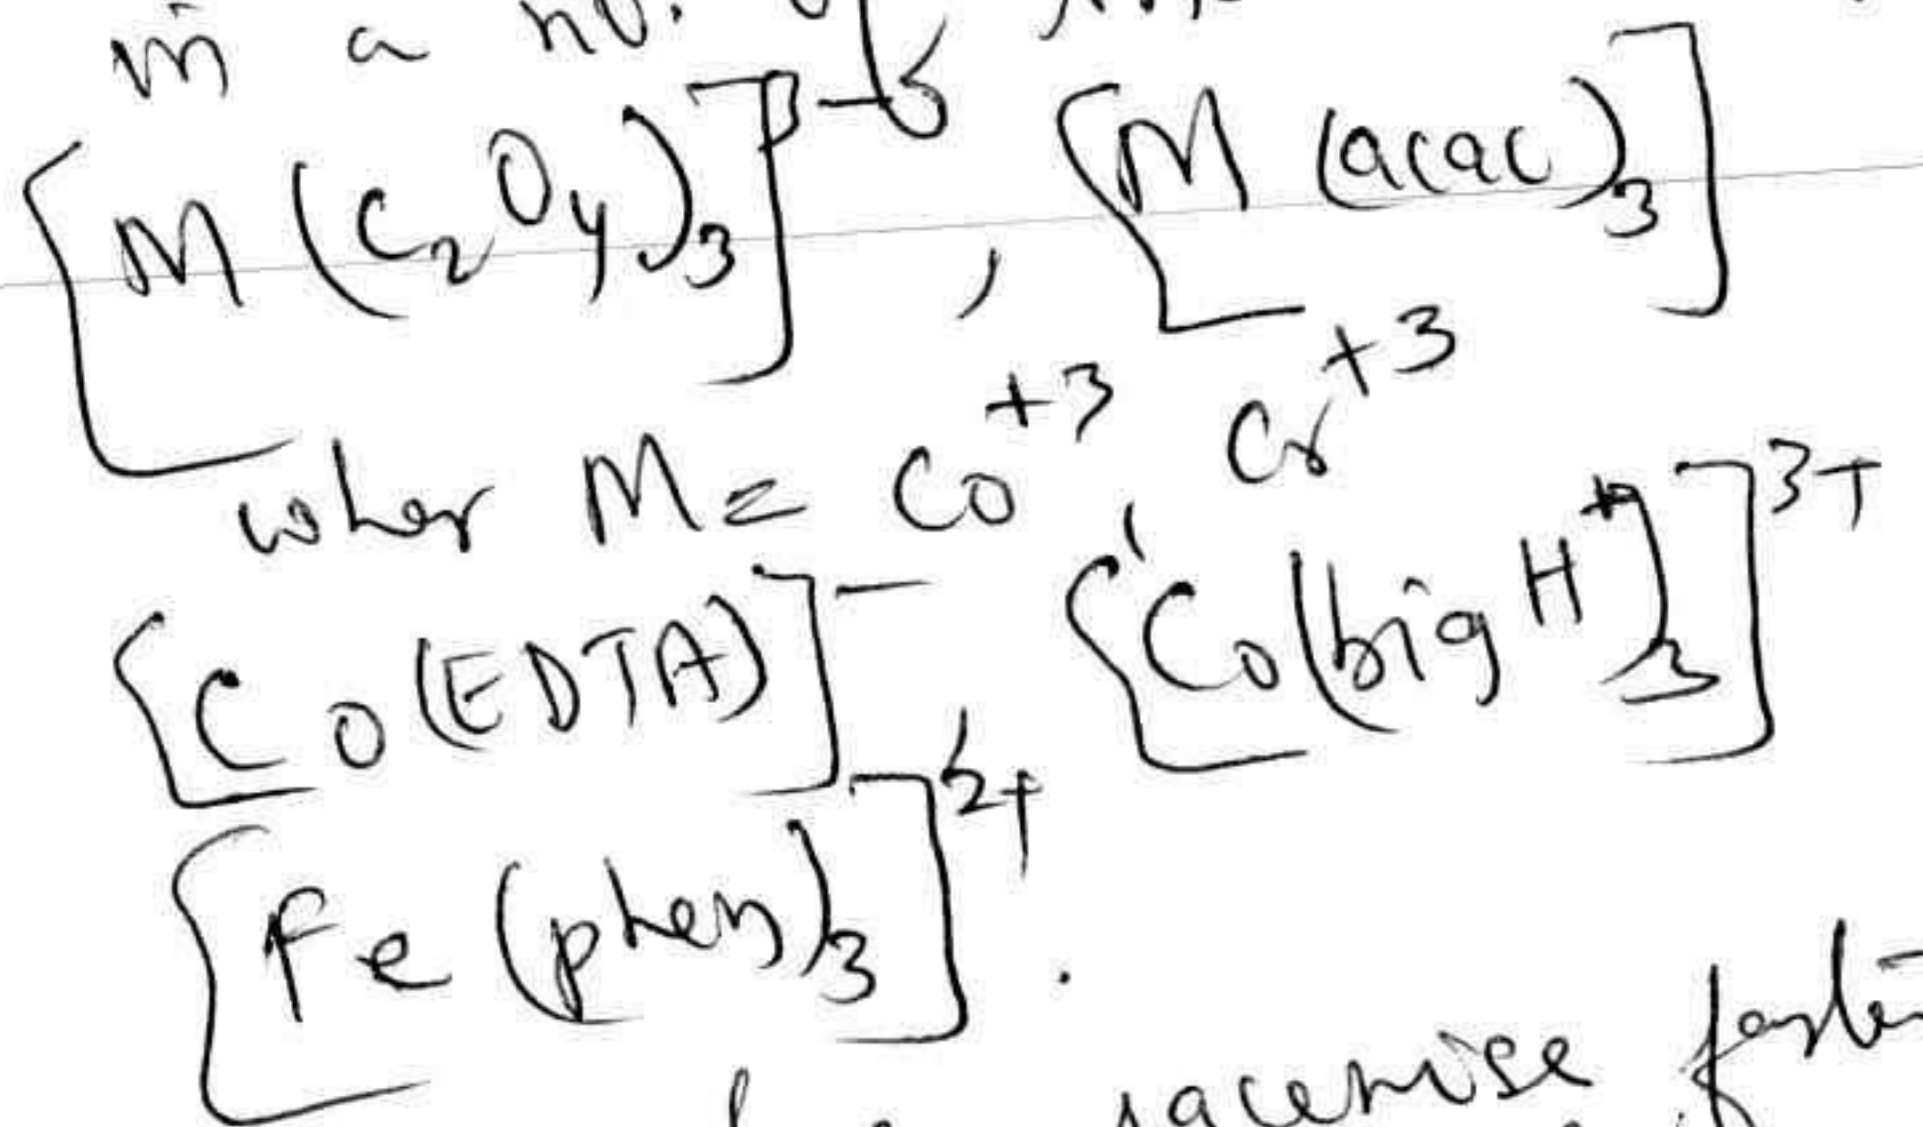 in a no. of
[M(C₂O₄)₃]³⁻, [M(acac)₃]
wher M = Co⁺³, Cr⁺³
[Co(EDTA)]⁻, [Co(bigH⁺)₃]³⁺
[Fe(phen)₃]²⁺.
racemise faster